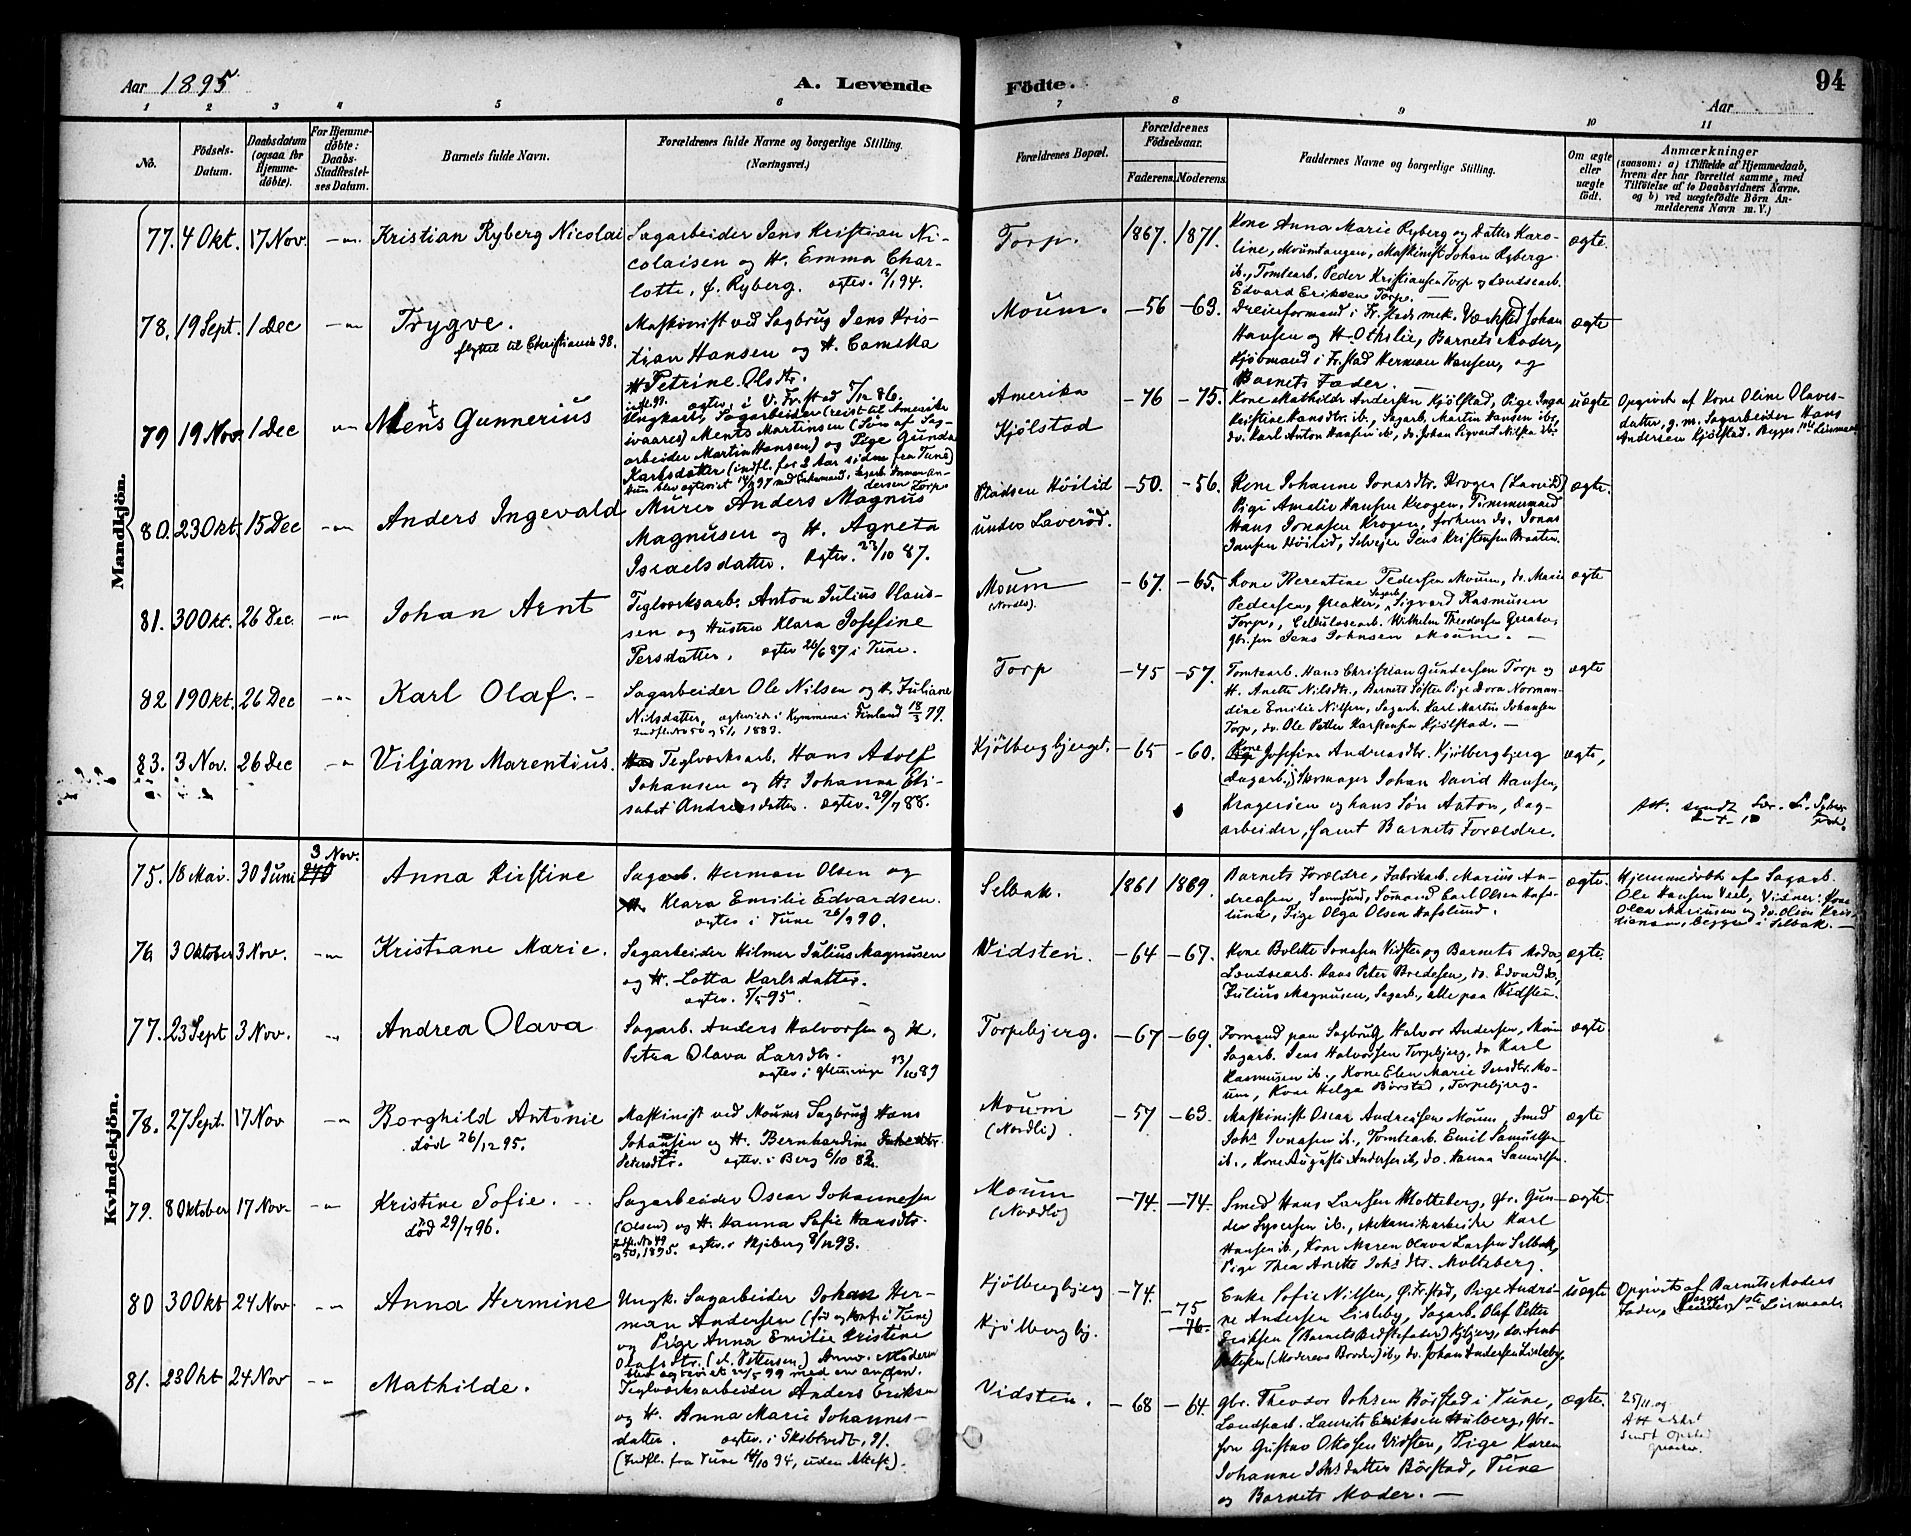 Aar 1895
A. Levende
Födte.
94
Aar
1 2 3 4 5 6 7 8 9 10 11
No.
Födsels-Datum.
Daabsdatum (ogsaa for Hjemme-döbte).
For Hjemme-döbte: Daabs-Stadfæstel-ses Datum.
Barnets fulde Navn.
Forældrenes fulde Navne og borgerlige Stilling.
(Næringsvei.)
Forældrenes Bopæl.
Forældrenes Födselsaar.
Faderens. Moderens.
Faddernes Navne og borgerlige Stilling.
Om ægte eller uægte födt.
Anmærkninger
(saasom: a) i Tilfælde af Hjemmedaab,
hvem der har forrettet samme, med
Tilföielse af to Daabsvidners Navne,
og b) ved uægtefödte Börn An-
melderens Navn m. V.)
Mandkjön.
77. 4 Okt. 17 Nov. Kristian Ryberg Nicolai
Sagarbeider Jens Kristian Ni-
colaisen og H. Emma Char-
lotte, f. Ryberg.
Torp. 1867. 1871.
Kone Anna Marie Ryberg og Datter Karo-
line, Moumtangen, Maskinist Johan Ryberg
ib., Tomtearb. Peder Kristiansen Torp og Landsearb.
Edvard Eriksen Torp.
ægte.
78. 19 Sept. 1 Dec Trygve.
flyttet til Christiania 98.
Maskinist ved Sagbrug Jens Kris-
tian Hansen og H. Camilla
Petrine Olsdtr.
Moum. –56 –63.
Dreierformand i Fr.stads mek. Værksted Johan
Hansen og H. Othilie, Barnets Moder,
Kjöbmand i Fr.stad Herman Hansen, og
Barnets Fader.
ægte
79 19 Nov. 1 Dec Ments Gunnerius
Ungkarl, Sagarbeider (reist til Amerika
ivaares) Ments Martinsen (Søn af Sag-
arbeider Martin Hansen) og Pige Gunda
Karlsdatter (indfl. for 2 Aar siden fra Tune)
Amerika
Kjølstad
–76 –75.
Kone Mathilde Andersen Kjølstad, Pige Inga
Kristine Hansdtr. ib., Sagarb. Martin Hansen ibd.,
do. Karl Anton Hansen ib., do. Johan Sigvard Nilsen ib.
uægte
Opgivet af Kone Oline Olaves-
datter, g. m. Sagarbeider Hans
Andersen Kjølstad.
80. 23 Okt. 15 Dec Anders Ingevald
Murer Anders Magnus
Magnusen og H. Agneta
Israelsdatter. Ægtev. 23/10 87.
Pladsen Höilid
under Laveröd.
–50. –56.
Hans Jonasen Krogen, forhen do. Jonas
Jansen Höilid, Selveier Jens Kristensen Braaten.
ægte.
81. 30 Okt. 26 Dec. Johan Arnt
Teglværksarb. Anton Julius Olaus-
sen og Hustru Klara Josefine
Persdatter. ægtev 26/6 87 i Tune.
Moum
(Nordli).
–67. –65.
Kone Berentine Pedersen Moum, do. Marie
Pedersen, Greaker, Sagarb. Sigvard Rasmusen
Torp, Cellulosearb. Wilhelm Theodorsen Greaker,
gbr. sön Jens Johnsen Moum.
ægte
82 19 Okt. 26 Dec Karl Olaf.
Sagarbeider Ole Nilsen og H. Juliane
Nilsdatter, ægteviede i Kymmene i Finland 18/3 79.
Indfl. No 50 og 51, 1883.
Torp –45 –57.
Tomtearb. Hans Christian Gundersen Torp og
H. Anette Nilsdtr., Barnets Søster Pige Dora Norman-
dine Emilie Nilsen, Sagarb. Karl Martin Johansen
Torp, do. Ole Petter Karstensen Kjølstad.
ægte
83. 3 Nov. 26 Dec Viljam Marentius.
Teglværksarb. Hans Adolf
Johansen og H. Johanna Eli-
sabet Andreasdatter. ægtev. 29/7 88.
Kjölbergbjerget. –65 –60.
Kone Josefine Andreasdtr. Kjölbergbjerg
(dagarb.) Skomager Johan David Hansen,
Krageröen og hans Søn Anton, dag-
arbeider, samt Barnets Forældre.
ægte,
Att. sendt
Kvindekjön.
75. 18 Mai. 30 Juni 3 Nov. Anna Kirstine
Sagarb. Herman Olsen og
Klara Emilie Edvardsen.
ægtev i Tune 26/9 90.
Selbak. 1861 1869.
Barnets Forældre, Fabrikarb. Marius An-
dreasen, Sannesund, Sömand Carl Olsen Hafs-
lund, Pige Olga Olsen Hafslund.
ægte.
Hjemmedöbt af Sagarb.
Ole Hansen Veel, Vidner: Kone
Olea Mariusen og do. Oline Kris-
tiansen, begge i Selbak.
76 3 Oktober 3 Nov. Kristiane Marie.
Sagarbeider Hilmer Julius Magnusen
og H. Lotta Karlsdatter.
ægtev. 5/5 95.
Vidsten. –64 –67.
Kone Bolette Jonasen Vidsten og Barnets Moder
Landsearb. Hans Peter Bredesen, do. Edvard do,
Julius Magnusen, Sagarb., alle paa Vidsten.
ægte.
77. 23 Sept 3 Nov. Andrea Olava
Sagarb. Anders Halvorsen og H.
Petra Olava Larsdtr.
ægtev i Glemminge 13/10 89
Torpebjerg. –67 –69.
Formand paa Sagbrug Halvor Andersen, Moum
Sagarb. Jens Halvorsen Torpebjerg, do Karl
Rasmusen ib., Kone Elen Marie Jensdtr. Mo-
um, Kone Helga Börstad, Torpebjerg.
ægte
78. 27 Sept. 17 Nov Borghild Antonie
död 26/12 95.
Maskinist ved Moums Sagbrug Hans
Johansen og H. Bernhardine
Petersdtr. ægtev. i Berg 6/10 82.
Moum
(Nordli).
–57 –63.
Maskinist Oscar Andreasen Moum, Smed
Johs Jonasen ib., Tomtearb. Emil Samuelsen
ib., Kone Augusta Andersen ib, do. Hanna Samuelsen.
ægte
79. 8 Oktober 17 Nov. Kristine Sofie.
död 29/7 96.
Sagarbeider Oscar Johannesen
(Olsen) og H. Hanna Sofie Hansdtr.
Indfl. No 49
og 50, 1895. ægtev. i Skjeberg 8/12 93.
Moum
(Nordli)
–74. –74.
Smed Hans Larsen Molteberg, gbr. Gun-
der Syversen ib., Mekanikarbeider Karl
Hansen ib., Kone Maren Olava Larsen Selbak,
Pige Thea Anette Johsdtr. Molteberg.
ægte
80 30 Okt 24 Nov. Anna Hermine
Ungk. Sagarbeider Johan Her-
man Andersen (fød og konf. i Tune)
og Pige Anna Emilie Kristine
Olafsdtr. (A. Pettersen) Anm. Moderen
blev ægteviet 26/5 99 med en anden.
Kjölbergbjerg
Kjölbergbj.
–74. –75
–76.
Enke Sofie Nilsen, Ø. Fr.stad, Pige Andri-
ne Andersen Lisleby, Sagarb. Olaf Petter
Eriksen (Barnets Bedstefader) Kjölbjerg, do. Arnt
Olafsen (Moderens Broder) ib., do. Johan Andersen Lisleby.
uægte
Opgivet af Barnets Moders
Fader, begges 1ste Leiermaal.
81. 23 Okt 24 Nov Mathilde.
Teglværksarbeider Anders Eriksen
og H. Anna Marie Johannes-
datter. ægtev. i Skibtvedt, 91.
(Indfl. fra Tune 14/10 94, uden Attest).
Vidsten. –68 –64.
gbr. Theodor Johsen Börstad i Tune,
Landsarb. Laurits Eriksen Hulberg, gbr.
sön Gustav Ottosen Vidsten, Pige Karen
Johanne Johsdatter Börstad, Tune
og Barnets Moder.
ægte.
25/11 og
Att
sendt